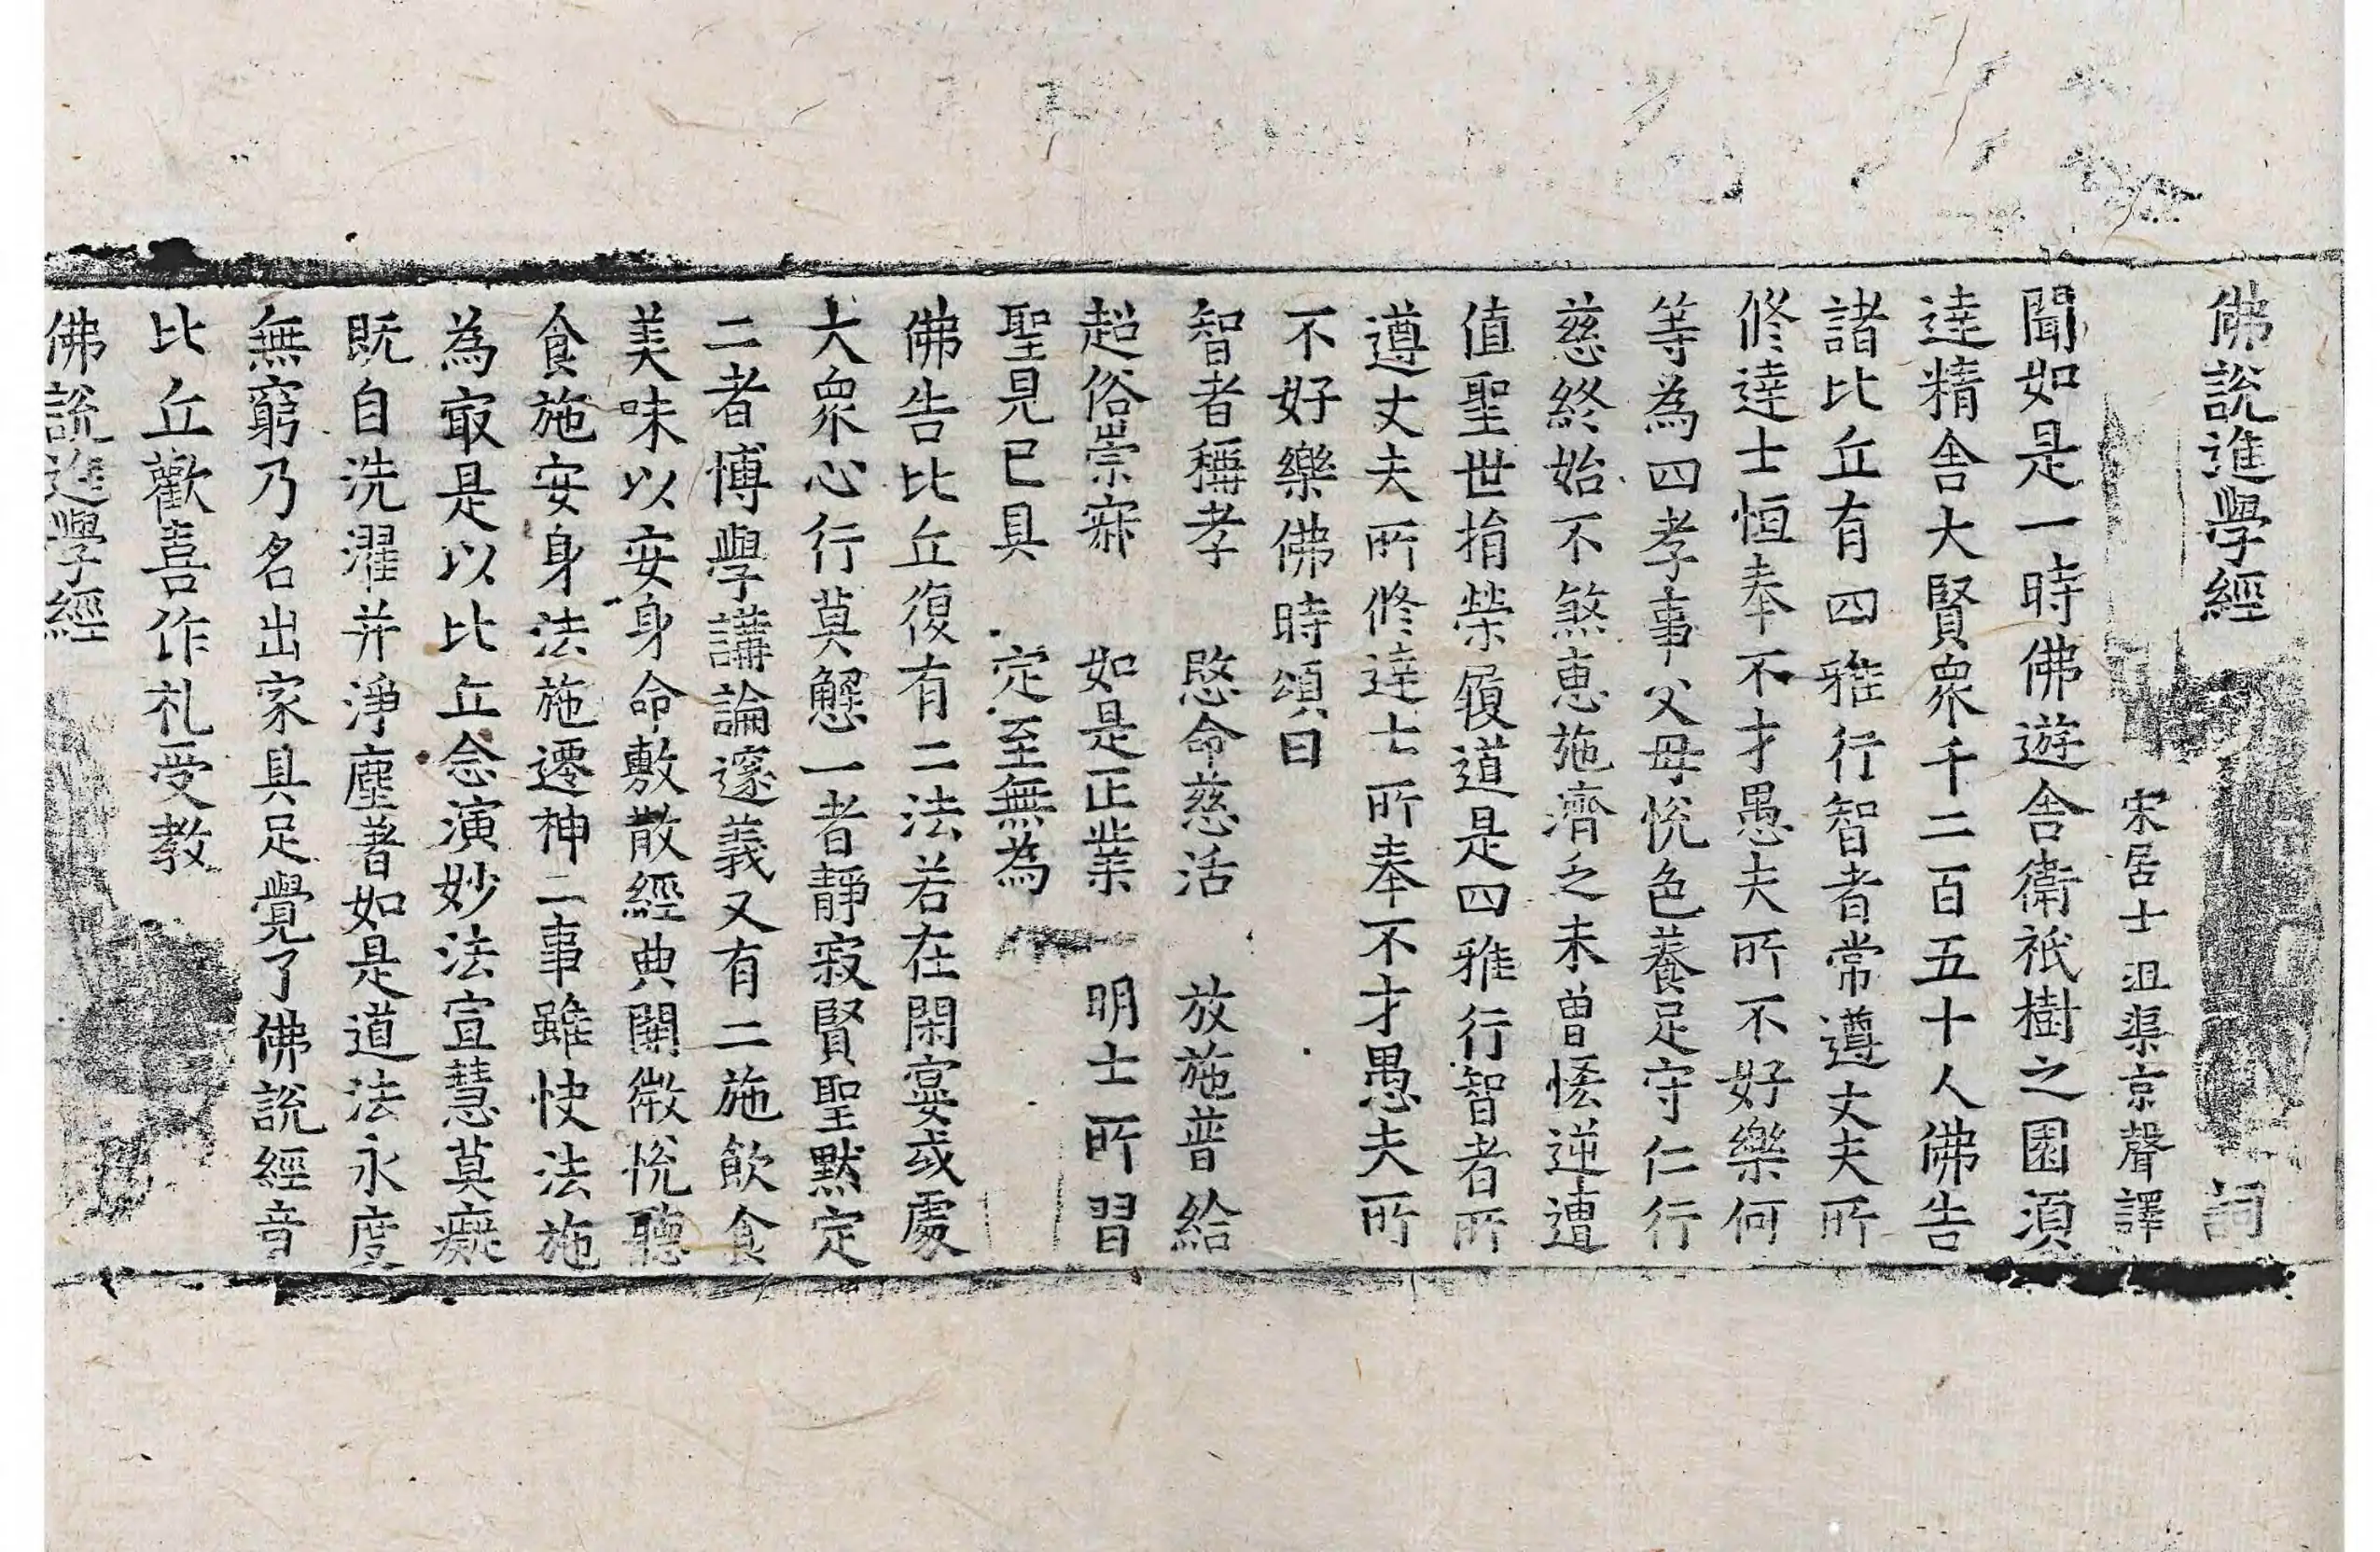 佛說進學經 詞
宋居士沮渠京聲譯
聞如是一時佛遊舍衛祇樹之園須
達精舍大賢衆千二百五十人佛告
諸比丘有四雅行智者常遵丈夫所
修達士恒奉不才愚夫所不好樂何
等為四孝事父母悅色養足守仁行
慈終始不煞惠施濟乏未曾悋逆遭
值聖世捐榮履道是四雅行智者所
遵丈夫所修達士所奉不才愚夫所
不好樂佛時頌曰
智者稱孝 愍命慈活 放施普給
超俗崇寂 如是正業 明士所習
聖見已具 定至無為
佛告比丘復有二法若在閑宴或處
大衆心行莫懈一者靜寂賢聖默定
二者博學講論邃義又有二施飲食
美味以安身命敷散經典闡微悅聽
食施安身法施遷神二事雖快法施
為㝡是以比丘念演妙法宣慧莫癡
既自洗濯并淨塵著如是道法永度
無窮乃名出家具足覺了佛說經音
比丘歡喜作礼受教
佛說進學經